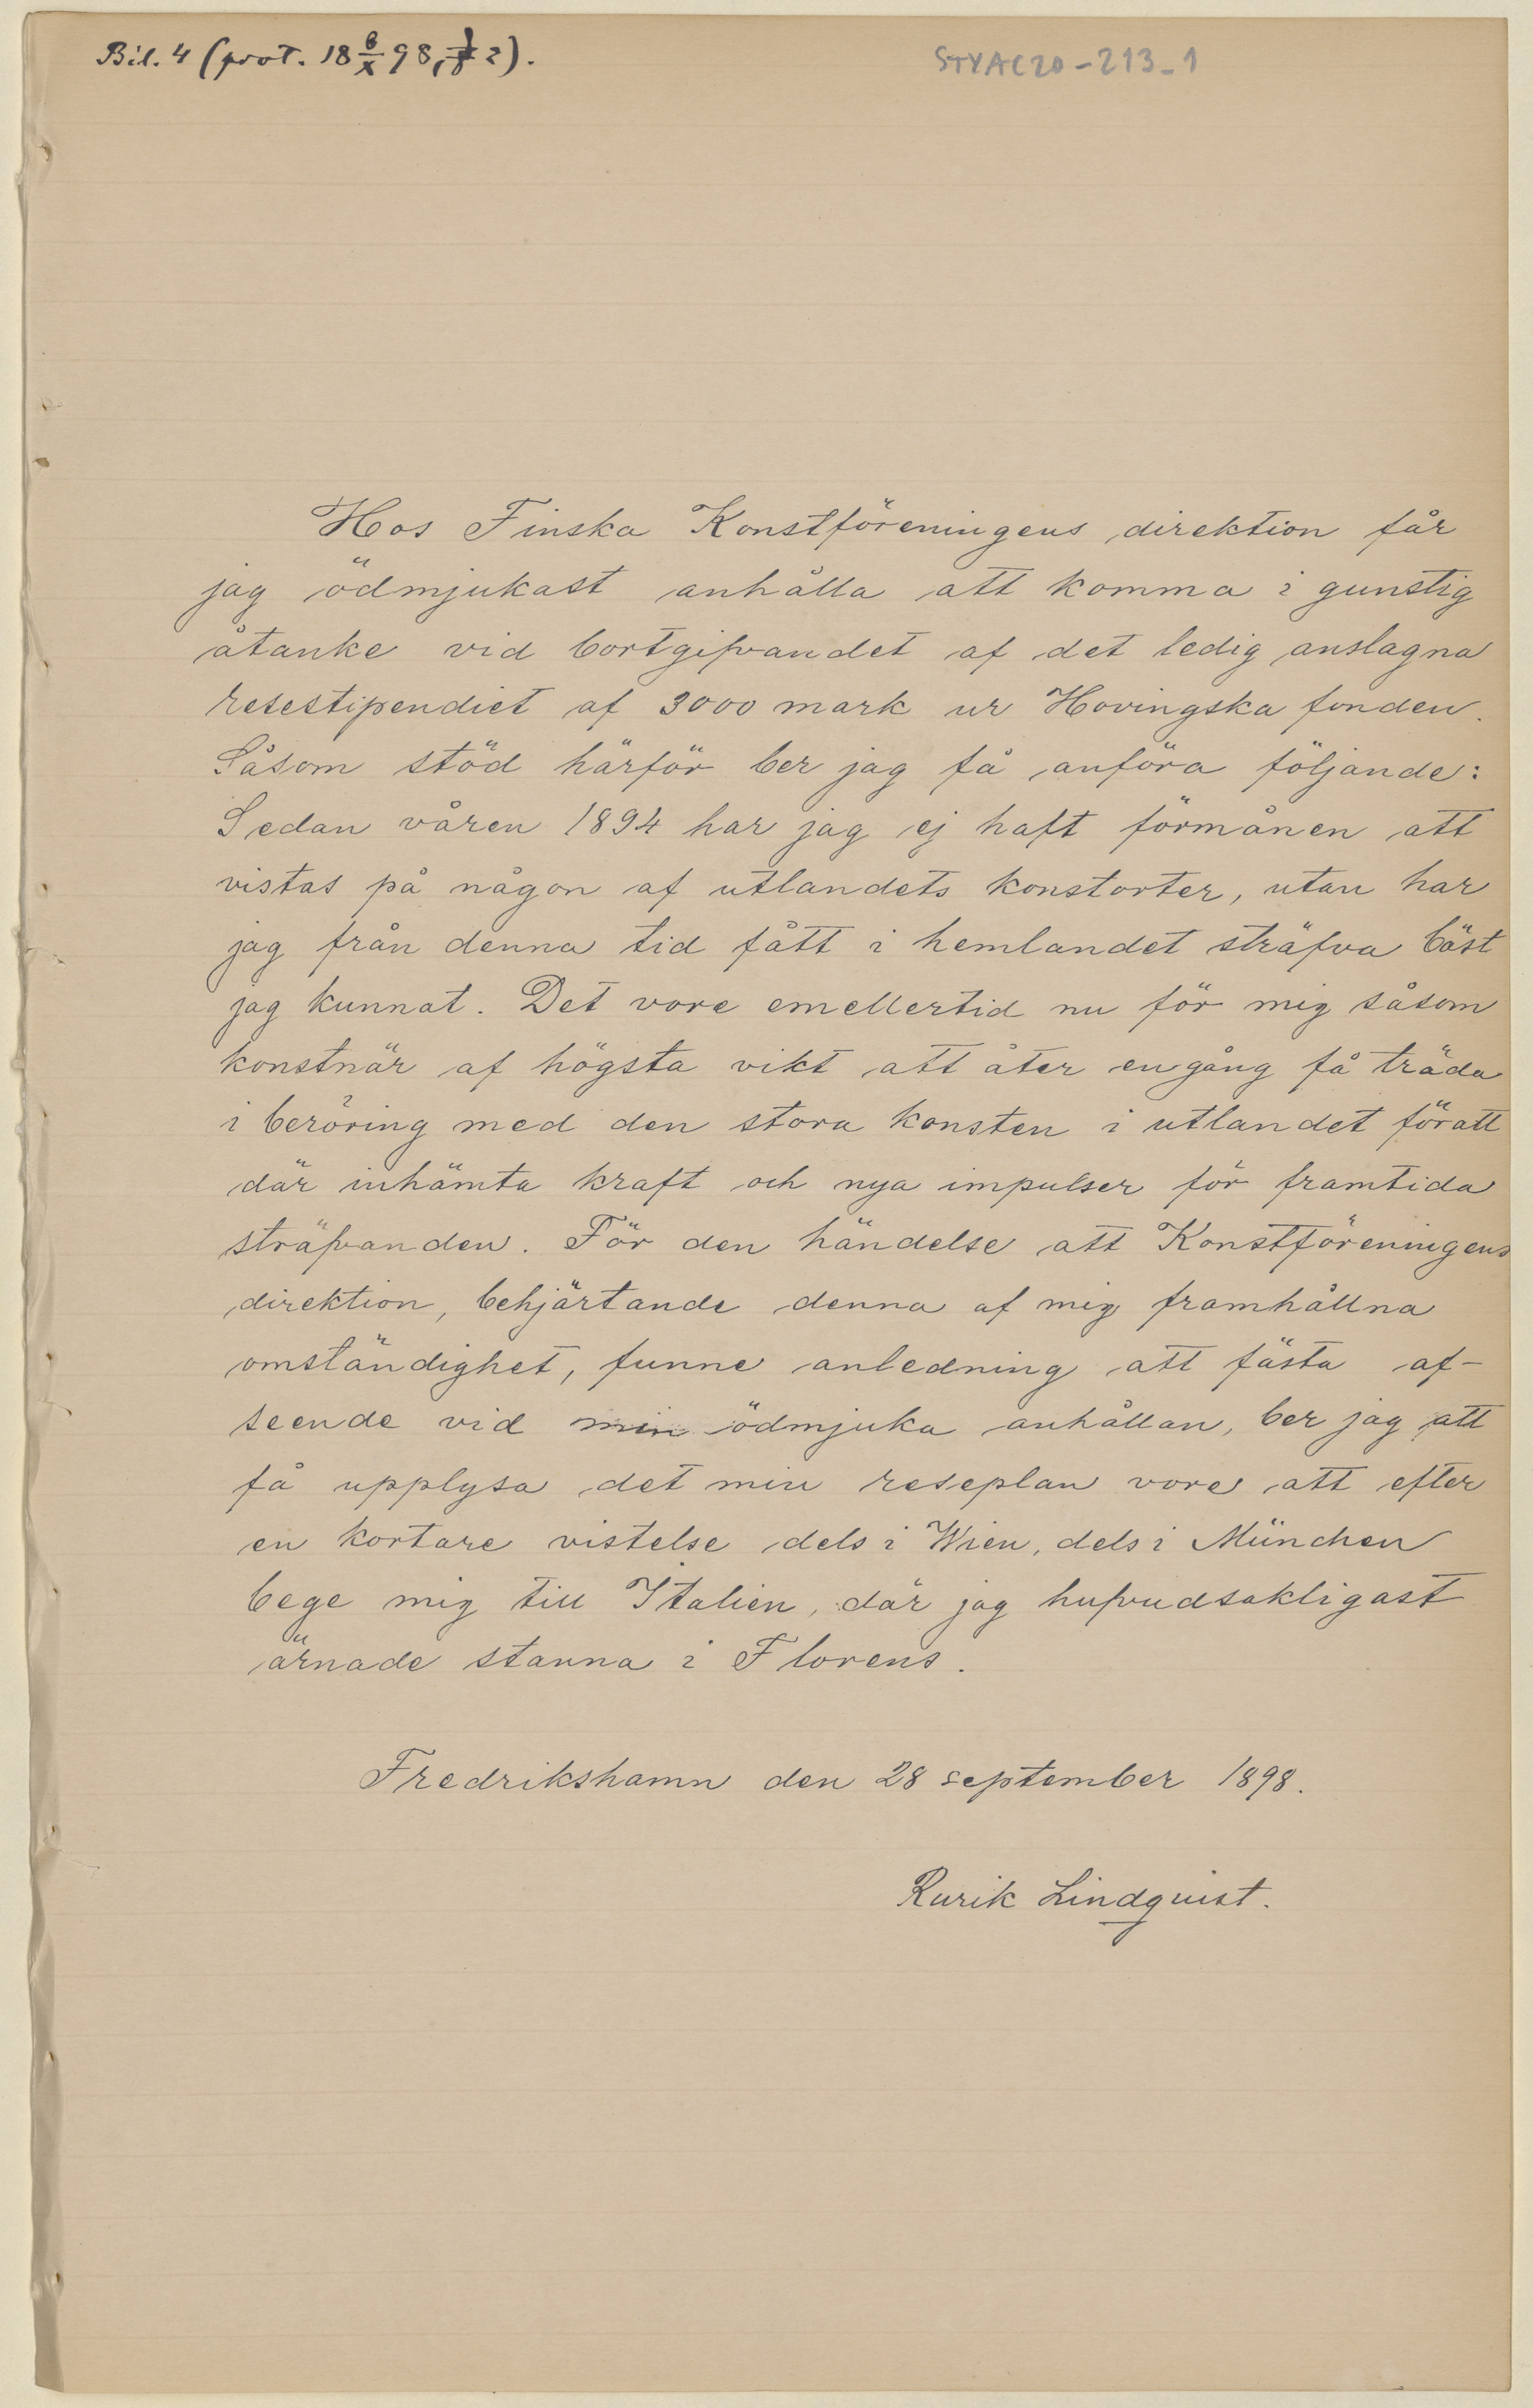 Bil. 4 (prot. 18 6/X 98, § 2).
STYAC20-213_1
Hos Finska Konstföreningens direktion får
jag ödmjukast anhålla att komma i gunstig
åtanke vid bortgifvandet af det ledig anslagna
resestipendiet af 3000 mark ur Hovingska fonden.
Såsom stöd härför ber jag få anföra följande:
Sedan våren 1894 har jag ej haft förmånen att
vistas på någon af utlandets konstorter, utan har
jag från denna tid fått i hemlandet sträfva bäst
jag kunnat. Det vore emellertid nu för mig såsom
konstnär af högsta vikt att åter engång få träda
i beröring med den stora konsten i utlandet föratt
där inhämta kraft och nya impulser för framtida
sträfvanden. För den händelse att Konstföreningens
direktion, behjärtande denna af mig framhållna
omständighet, funne anledning att fästa af-
seende vid min ödmjuka anhållan, ber jag att
få upplysa det min reseplan vore att efter
en kortare vistelse dels i Wien, dels i München
bege mig till Italien, där jag hufvudsakligast
ärnade stanna i Florens.
Fredrikshamn den 28 september 1898.
Rurik Lindqvist.